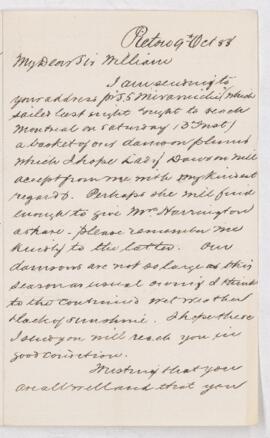 Pictou 9th Oct 88
My Dear Sir William
I am sending to
your address pr S.S Miramichi (which
sailed last night & ought to reach
Montreal on Saturday 13 Inst)
a basket of our damson plums
which I hope Lady Dawson will
accept from me with my kindest
regards. Perhaps she will find
enough to give Mrs Harrington
a share. Please remember me
kindly to the latter. Our
damsons are not so large as this
season as usual owing I think
to the continued wet weather
& lack of sunshine. I hope these
I send you will reach you in
good condition.
Trusting that you
are all well and that you